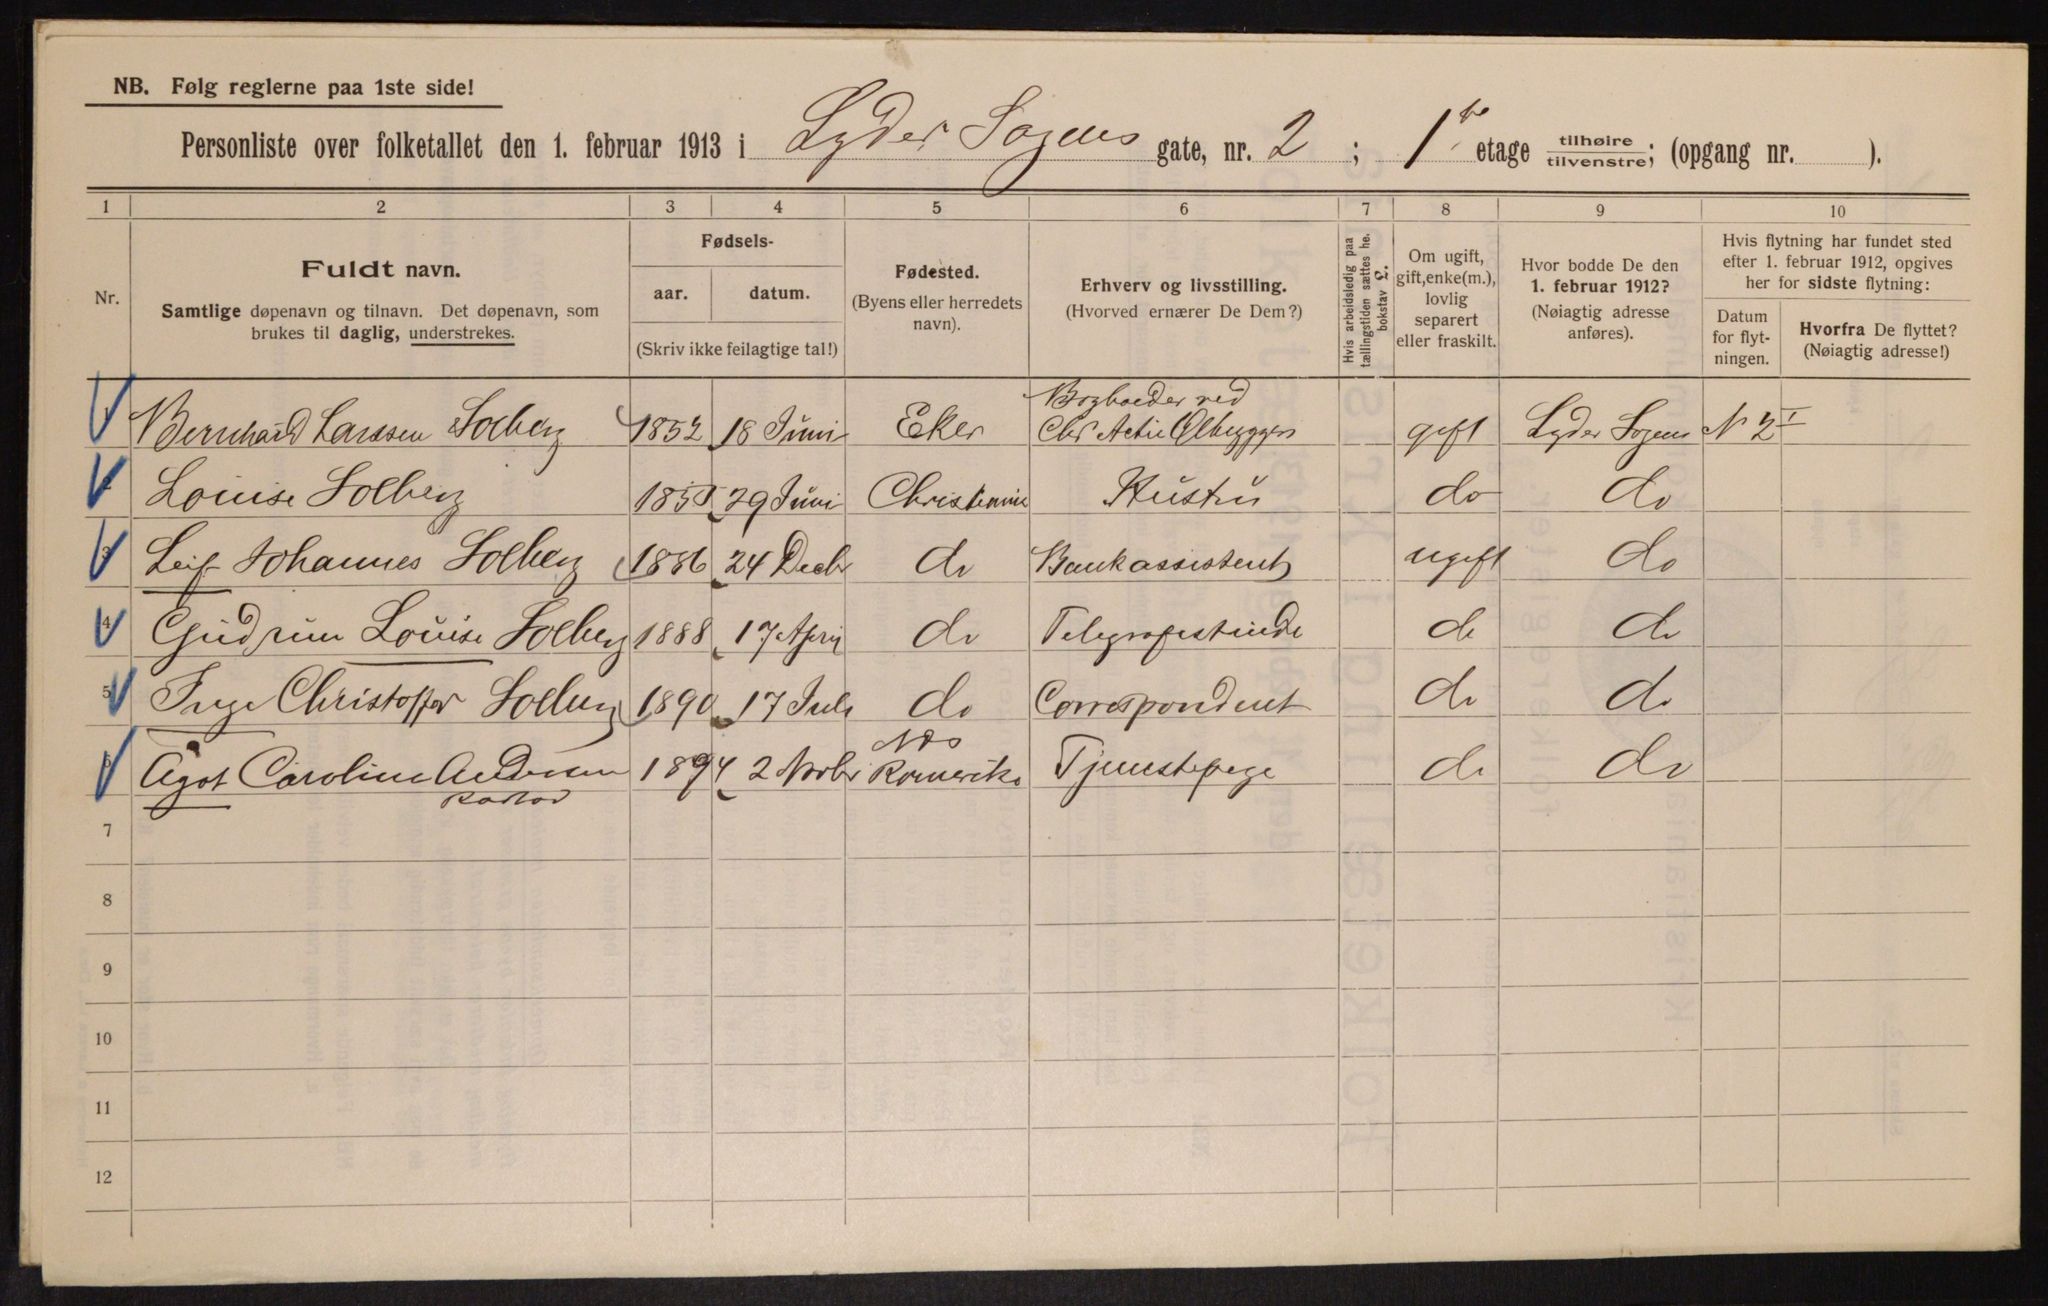 NB. Følg reglerne paa 1ste side!
Personliste over folketallet den 1. februar 1913 i Lyder Sagens gate, nr. 2 ; 1ste etage tilhøire tilvenstre; (opgang nr. ).
1 2 3 4 5 6 7 8 9 10
Nr.
Fuldt navn.
Samtlige døpenavn og tilnavn. Det døpenavn, som
brukes til daglig, understrekes.
Fødsels-
aar. datum.
(Skriv ikke feilagtige tal!)
Fødested.
(Byens eller herredets
navn).
Erhverv og livsstilling.
(Hvorved ernærer De Dem?)
Hvis arbeidsledig paa
tællingstiden sættes he.
bokstav L.
Om ugift,
gift, enke(m.),
lovlig
separert
eller fraskilt.
Hvor bodde De den
1. februar 1912?
(Nøiagtig adresse
anføres).
Hvis flytning har fundet sted
efter 1. februar 1912, opgives
her for sidste flytning:
Datum
for flyt-
ningen.
Hvorfra De flyttet?
(Nøiagtig adresse!)
1 Bernhard Larssen Solberg 1852 18 Juni Eker Bogholder ved
Chr Actie Ølbryggeri gift Lyder Sagens N 2 I
2 Louise Solberg 1855 29 Juni Christiania Hustru do do
3 Leif Johannes Solberg 1886 24 Decbr do Bankassistent ugift do
4 Gudrun Louise Solberg 1888 17 April do Telegrafistinde do do
5 Inge Christoffer Solberg 1890 17 Juli do Correspondent do do
6 Agot Caroline Andersen 1894 2 Novbr Nds
Romerike Tjenestepige do do
7
8
9
10
11
12